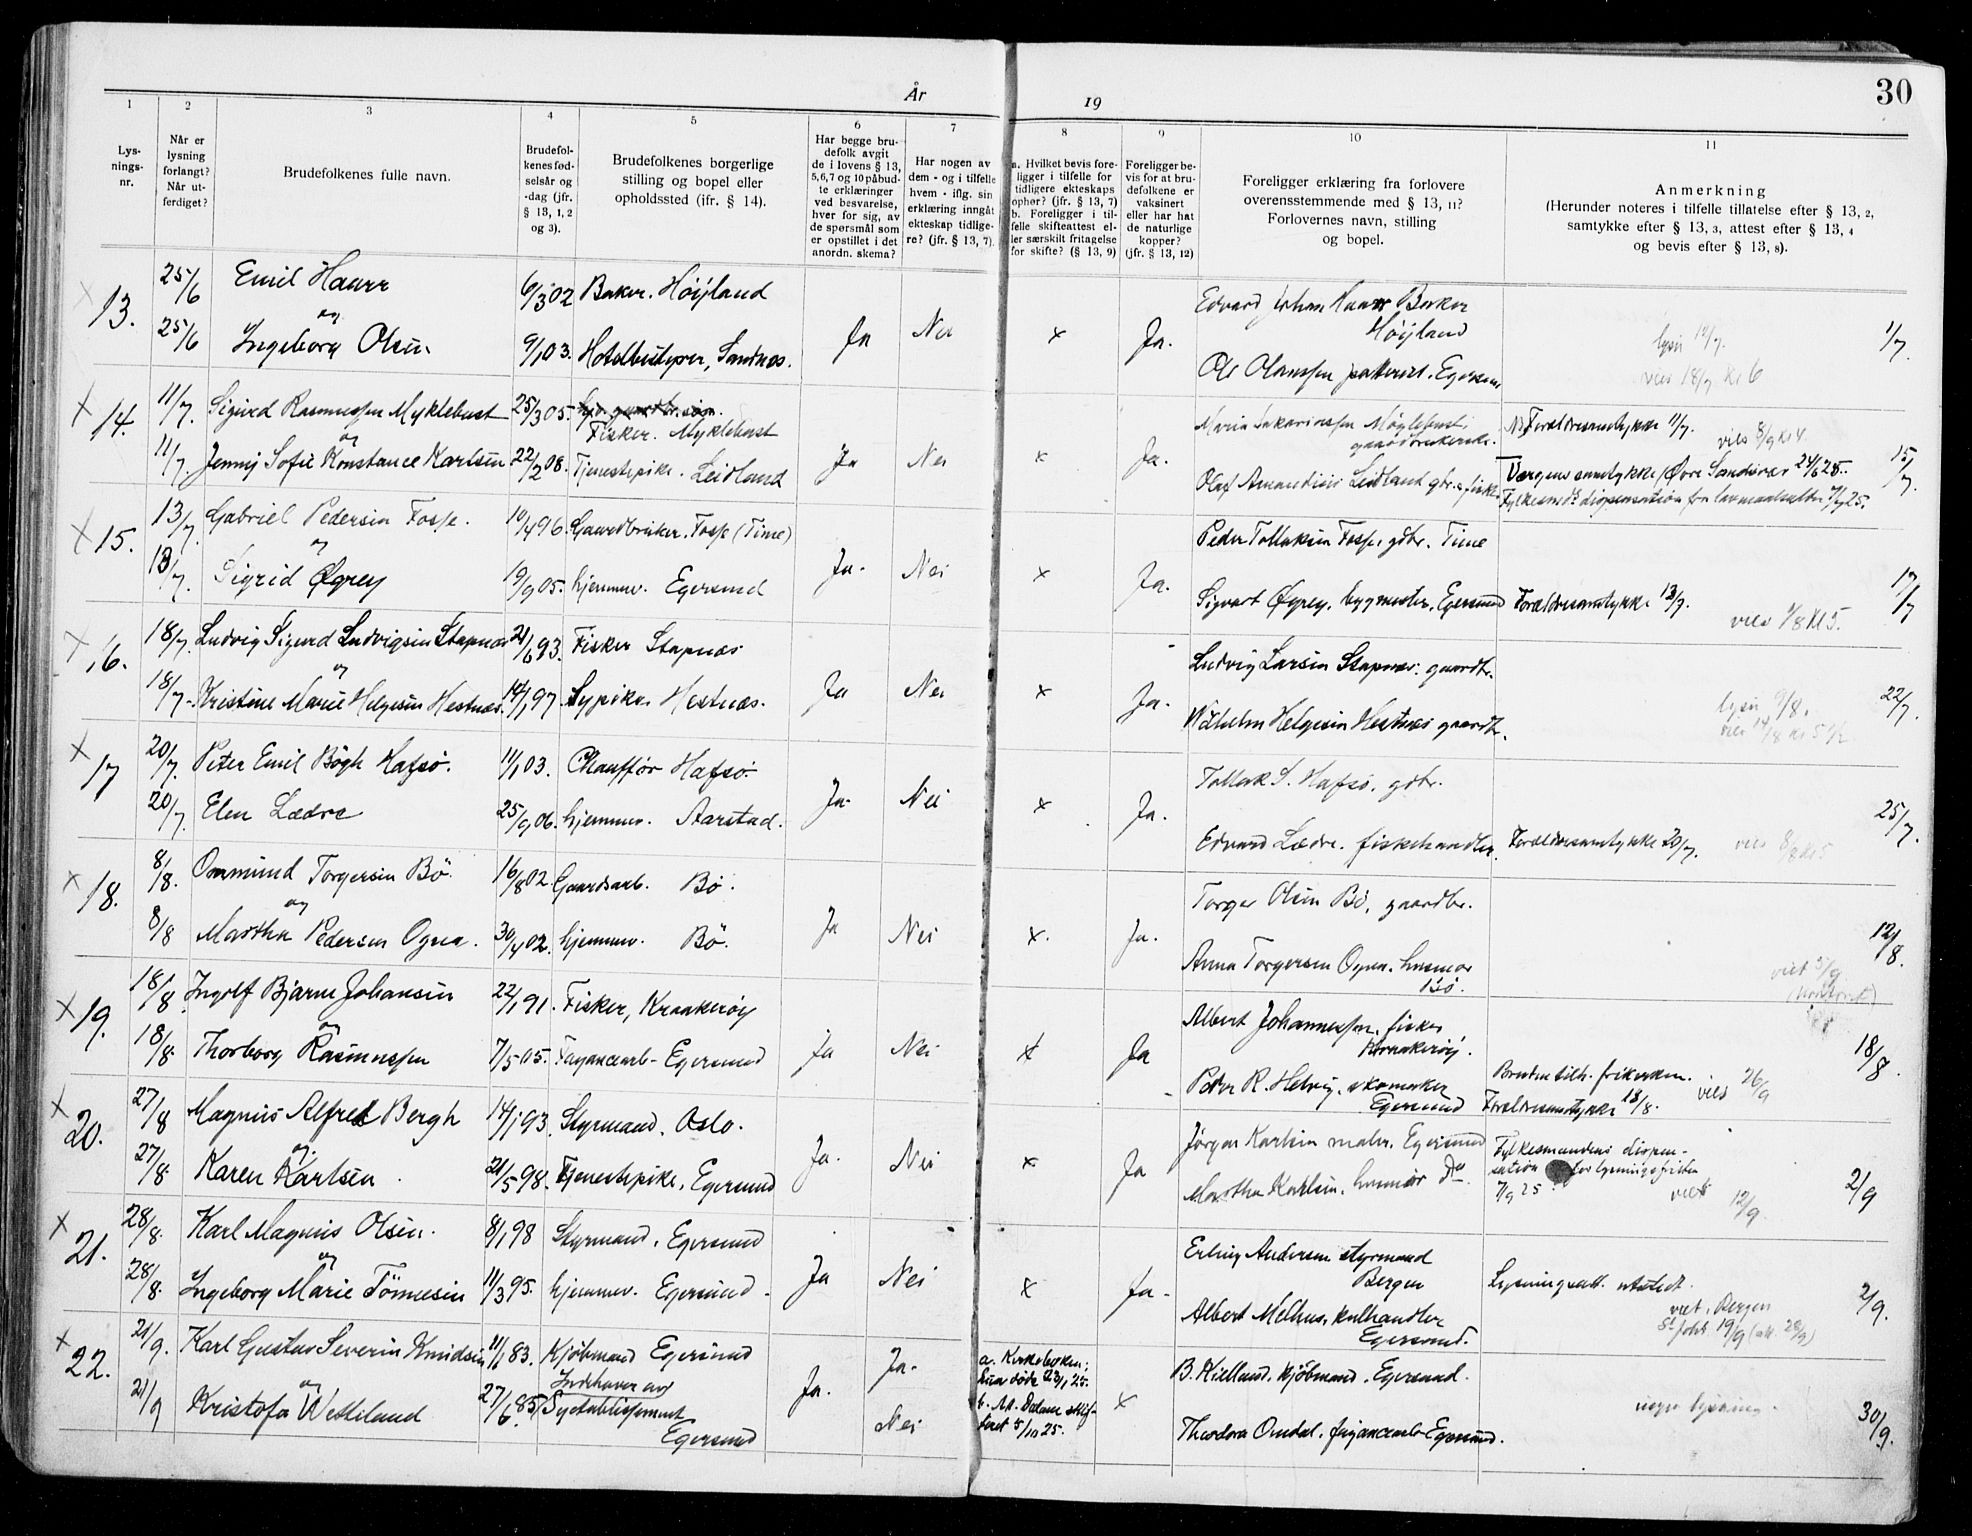 30
År
19
1
2
3
4
5
6
7
8
9
10
11
Lys-
nings-
nr.
Når er
lysning
forlangt?
Når ut-
ferdiget?
Brudefolkenes fulle navn.
Brudefol-
kenes fød-
selsår og
-dag (jfr.
§ 13, 1, 2
og 3).
Brudefolkenes borgerlige
stilling og bopel eller
opholdssted (ifr. § 14).
Har begge bru-
defolk avgit
de i lovens § 13,
5, 6, 7 og 10 påbud-
te erklæringer
ved besvarelse,
hver for sig, av
de spørsmål som
er opstillet i det
anordn. skema?
Har nogen av
dem - og i tilfelle
hvem - iflg. sin
erklæring inngåt
ekteskap tidlige-
re? (jfr. § 13, 7).
a. Hvilket bevis fore-
ligger i tilfelle for
tidligere ekteskaps
ophør? (jfr. § 13, 7)
b. Foreligger i til-
felle skifteattest el-
ler særskilt fritagelse
for skifte? (§ 13, 9)
Foreligger be-
vis for at bru-
defolkene er
vaksinert
eller har hat
de naturlige
kopper?
(jfr. § 13, 12)
Foreligger erklæring fra forlovere
overensstemmende med § 13, 11?
Forlovernes navn, stilling
og bopel.
Anmerkning
(Herunder noteres i tilfelle tillatelse efter § 13, 2,
samtykke efter § 13, 3, attest efter § 13, 4
og bevis efter § 13, 8).
13.
25/6 Emil Haarr 6/3 02 Baker. Höyland
og
25/6 Ingeborg Olsen 9/1 03. Sandnes.
Ja Nei x Ja.
Edvard Johan Haarr Baker
Höyland
Ole Egersund
lyst 12/7.
vies 18/7 kl 6
1/7.
x 14.
11/7. Sigurd Rasmussen Myklebust 25/3 05.
Fisker. Myklebust
og
11/7. Jenny Sofie Konstance Karlsen 22/2 08. Tjenestepike. Leidland
Ja Nei x Ja.
gaardbrukerske.
Olaf Leidland gbr. & fisker
Forældresamtykke 11/7.
vies 8/9 kl 4.
15/7.
x 15.
13/7. Gabriel Pedersen Fosse. 10/4 96 Gaardbruker. Fosse (Time)
og
13/7. Sigrid Øgrey 19/9 05. hjemmev. Egersund
Ja. Nei x Ja.
Peder Tollaksen Fosse, gdbr. Time
Sigvart Øgrey, bygmester, Egersund
Forældresamtykke 13/7.
vies 1/8 kl 5.
17/7
x 16.
18/7. Ludvig Sigurd Ludvigsen Stapnæs 21/6 93. Fisker Stapnæs
og
18/7. Kristine Marie Helgesen Hestnæs. 14/1 97. Sypike. Hestnæs.
Ja Nei x Ja.
Ludvig Larsen Stapnæs. gaardbr.
Wilhelm Helgesen Hestnæs gaardbr.
lyst 9/8.
vies 14/8 kl 5 1/2
22/7.
x 17
20/7. Peter Emil Bögh Hafsö. 11/1 03. Chauffør Hafsö.
20/7. Elen Lædre 25/9 06. hjemmev. Aarstad.
Ja. Nei x Ja.
Tollak S. Hafsö, gdbr.
Edvard Lædre. fiskehandler.
Forældresamtykke 20/7.
vies 8/8 kl 5
25/7.
x 18.
8/8. Ommund Torgersen Bö. 16/8 02. Gaardsarb. Bö.
og
8/8 Martha Pedersen Ogna. 30/4 02. hjemmev. Bö.
Ja Nei x. Ja.
Torger Olsen Bö, gaardbr.
Anna Torgersen Ogna. husmor
Bö.
viet 5/9.
12/8.
x 19.
18/8. Ingolf Bjarne Johansen 22/1 91. Fisker, Kraakeröy
og
18/8. Thorborg Rasmussen 7/5 05. Fayancearb. Egersund
Ja Nei x Ja
Albert Johannessen. fisker
Kraakeröy.
Peder R. Helvig, skomaker
Egersund
Bruden tilh. frikirken.
Forældresamtykke 18/8.
vies 26/9
18/8
x 20.
27/8 Magnus Alfred Bergh 14/1 93. Styrmand. Oslo.
og
27/8. Karen Karlsen 21/5 98. Tjenestepike, Egersund
Ja. Nei x Ja
Jörgen Karlsen maler. Egersund
Martha Karlsen. husmor Do.
Fylkesmandens dispen-
sation for lysningsfristen
7/9 25.
viet 12/9.
2/9
x 21.
28/8. Karl Magnus Olsen. 8/1 98 Styrmand. Egersund
og
28/8. Ingeborg Marie Tönnesen 11/3 95. hjemmev. Egersund.
Ja Nei x Ja.
Erling Andersen styrmand
Bergen
Albert Melhus, kulhandler
Egersund.
Lysningsatt. utstedt.
viet i Bergen
St. Joh. 19/9 (att. 28/9)
2/9.
x 22.
21/9. Karl Gustav Severin Knudsen 11/1 83. Kjöbmand Egersund
og
21/9 Kristofa Wetteland 27/6. 85. Indehaver av
Syetablissement
Egersund
Ja. Ja.
Nei
a. Kirkeboken:
hun döde 23/1 25.
b. 5/10 25.
x
B. Kielland. kjöbmand. Egersund.
Theodora Omdal, fayancearb. Egersund.
ingen lysning.
30/9.